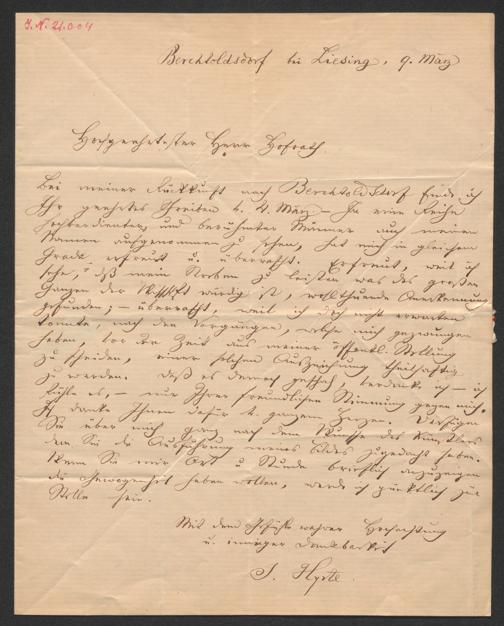 J.N. 21.004
Berchtoldsdorf bei Liesing, 9. März
Hochgeehrtester Herr Hofrath.
Bei meiner Rückkunft nach Berchtoldsdorf finde ich
Ihr geehrtes Schreiben v. 4. März – In eine Reihe
hochverdienter und berühmter Männer auch meinen
Namen aufgenommen zu sehen, hat mich in gleichem
Grade erfreut u. überrascht. Erfreut, weil ich
sehe, daß mein Streben zu leisten was des großen
Ganzen der würdig ist, wohlthuende Anerkennung
gefunden; – überrascht, weil ich doch nicht erwarten
konnte, nach den Vorgängen, welche mich gezwungen
haben, vor der Zeit aus meiner öffentl. Stellung
zu scheiden, einer solchen Auszeichnung theilhaftig
zu werden. Daß es dennoch geschah, verdanke ich – ich
fühle es, – nur Ihrer freundlichen Stimmung gegen mich.
Ich danke Ihnen dafür v. ganzem Herzen. Verfügen
Sie über mich ganz nach dem Wunsche des Künstlers
dem Sie die Ausführung meines Bildes zugedacht haben.
Wenn Sie mir Ort u Stunde brieflich anzuzeigen
die Gewogenheit haben wollen, werde ich pünktlich zur
Stelle sein.
Mit dem Gefühle wahrer Hochachtung
u. inniger Dankbarkeit
J. Hyrtl.